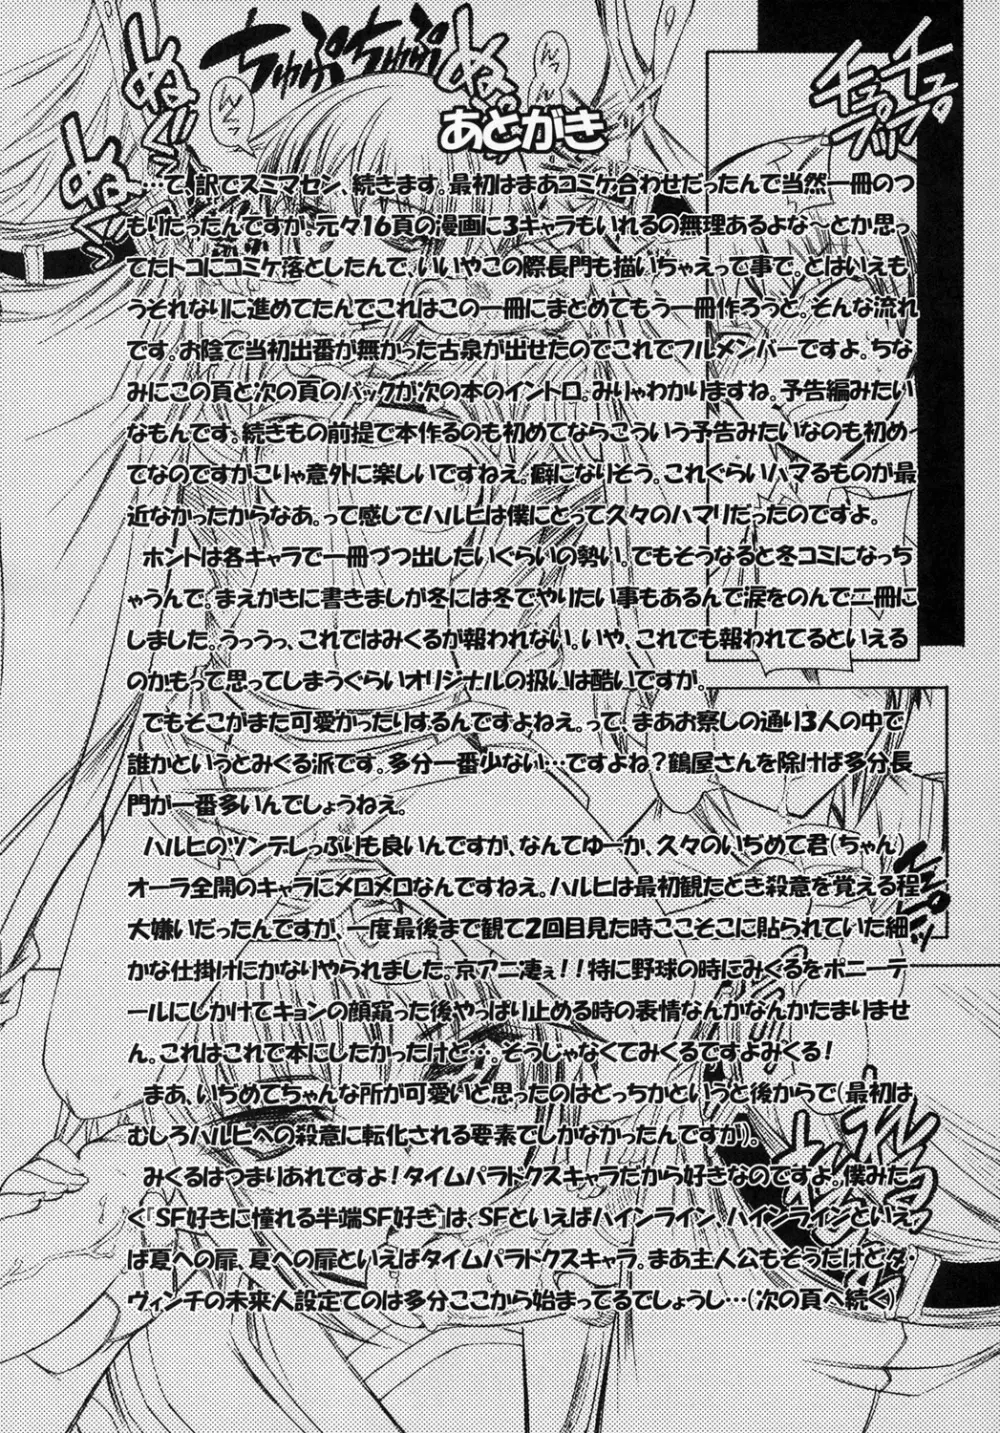 ちゅぷちゅぷ
あとがき
…て、訳でスミマセン、続きます。最初はまあコミケ合わせだったんで当然一冊のつ
もりだったんですが、元々16頁の漫画に3キャラもいれるの無理あるよな～とか思っ
てたトコにコミケ落としたんで、いいやこの際長門も描いちゃえって事で。とはいえも
うそれなりに進めてたんでこれはこの一冊にまとめてもう一冊作ろうと。そんな流れ
です。お陰で当初出番が無かった古泉が出せたのでこれでフルメンバーですよ。ちな
みにこの頁と次の頁のバックが次の本のイントロ。みりゃわかりますね。予告編みたい
なもんです。続きもの前提で本作るのも初めてならこういう予告みたいなのも初め
てなのですがこりゃ意外に楽しいですねえ。癖になりそう。これぐらいハマるものが最
近なかったからなあ。って感じでハルヒは僕にとって久々のハマリだったのですよ。
ホントは各キャラで一冊づつ出したいぐらいの勢い。でもそうなると冬コミになっち
ゃうんで。まえがきに書きましが冬には冬でやりたい事もあるんで涙をのんで二冊に
しました。うっうっ、これではみくるが報われない。いや、これでも報われてるといえる
のかもって思ってしまうぐらいオリジナルの扱いは酷いですが。
でもそこがまた可愛かったりするんですよねえ。って、まあお察しの通り3人の中で
誰かというとみくる派です。多分一番少ない…ですよね？鶴屋さんを除けば多分長
門が一番多いんでしょうねえ。
ハルヒのツンテレっぷりも良いんですが、なんてゆーか、久々のいぢめて君(ちゃん)
オーラ全開のキャラにメロメロなんですねえ。ハルヒは最初観たとき殺意を覚える程
大嫌いだったんですが、一度最後まで観て2回目見た時ここそこに貼られていた細
かな仕掛けにかなりやられました。京アニ凄ぇ！！特に野球の時にみくるをポニーテ
ールにしかけてキョンの顔窺った後やっぱり止める時の表情なんかなんかたまりませ
ん。これはこれで本にしたかったけど…。そうじゃなくてみくるですよみくる！
まあ、いぢめてちゃんな所が可愛いと思ったのはどっちかというと後からで(最初は
むしろハルヒへの殺意に転化される要素でしかなかったんですが)。
みくるはつまりあれですよ！タイムパラドクスキャラだから好きなのですよ。僕みた
く『SF好きに憧れる半端SF好き』は、SFといえばハインライン、ハインラインといえ
ば夏への扉、夏への扉といえばタイムパラドクスキャラ。まあ主人公もそうだけどダ・
ヴィンチの未来人設定てのは多分ここから始まってるでしょうし…(次の頁へ続く)